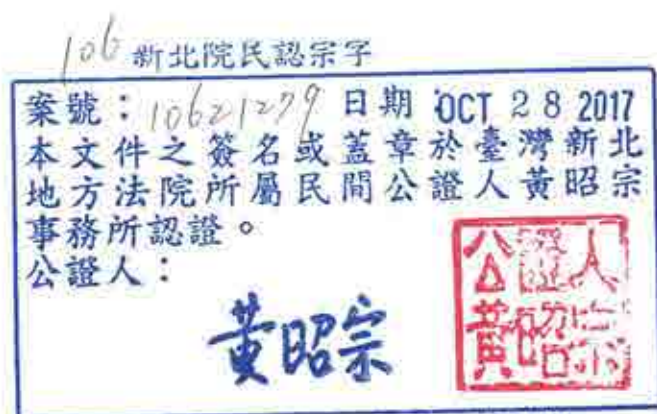 106 新北院民認宗字
案號：10621279 日期：OCT 28 2017
本文件之簽名或蓋章於臺灣新北
地方法院所屬民間公證人黃昭宗
事務所認證。
公證人：
黃昭宗
公證人
黃昭宗